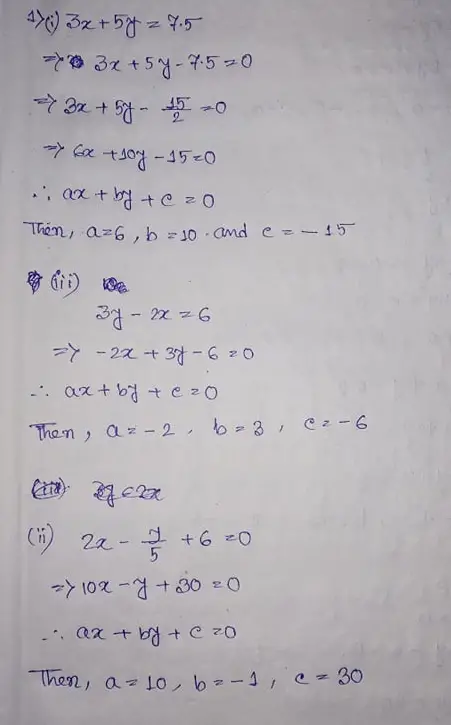 1>(i) 3x + 5y = 7.5
=> 3x + 5y - 7.5 = 0
=> 3x + 5y - 15/2 = 0
=> 6x + 10y - 15 = 0
∴ ax + by + c = 0
Then, a = 6, b = 10 and c = - 15
(iii)
3y - 2x = 6
=> -2x + 3y - 6 = 0
∴ ax + by + c = 0
Then, a = -2, b = 3, c = -6
(ii) 2x - y/5 + 6 = 0
=> 10x - y + 30 = 0
∴ ax + by + c = 0
Then, a = 10, b = -1, c = 30